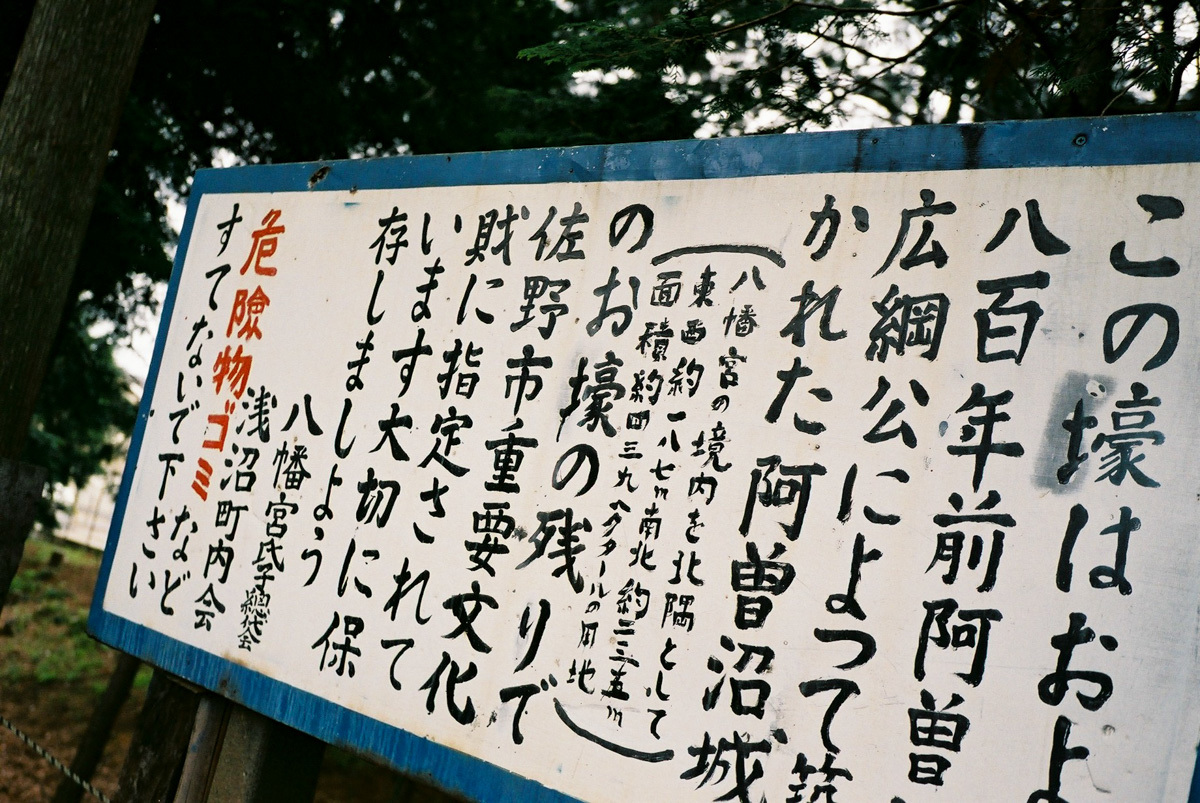 この壕はおよ
八百年前阿曽
広綱公によつて築
かれた阿曽沼城
(八幡宮の境内を北隅として
東西約一八七m南北約二三五m
面積約四三九ヘクタールの用地)
のお壕の残りで
佐野市重要文化
財に指定されて
います大切に保
存しましよう
八幡宮氏子総代会
浅沼町内会
危険物ゴミなど
すてないで下さい